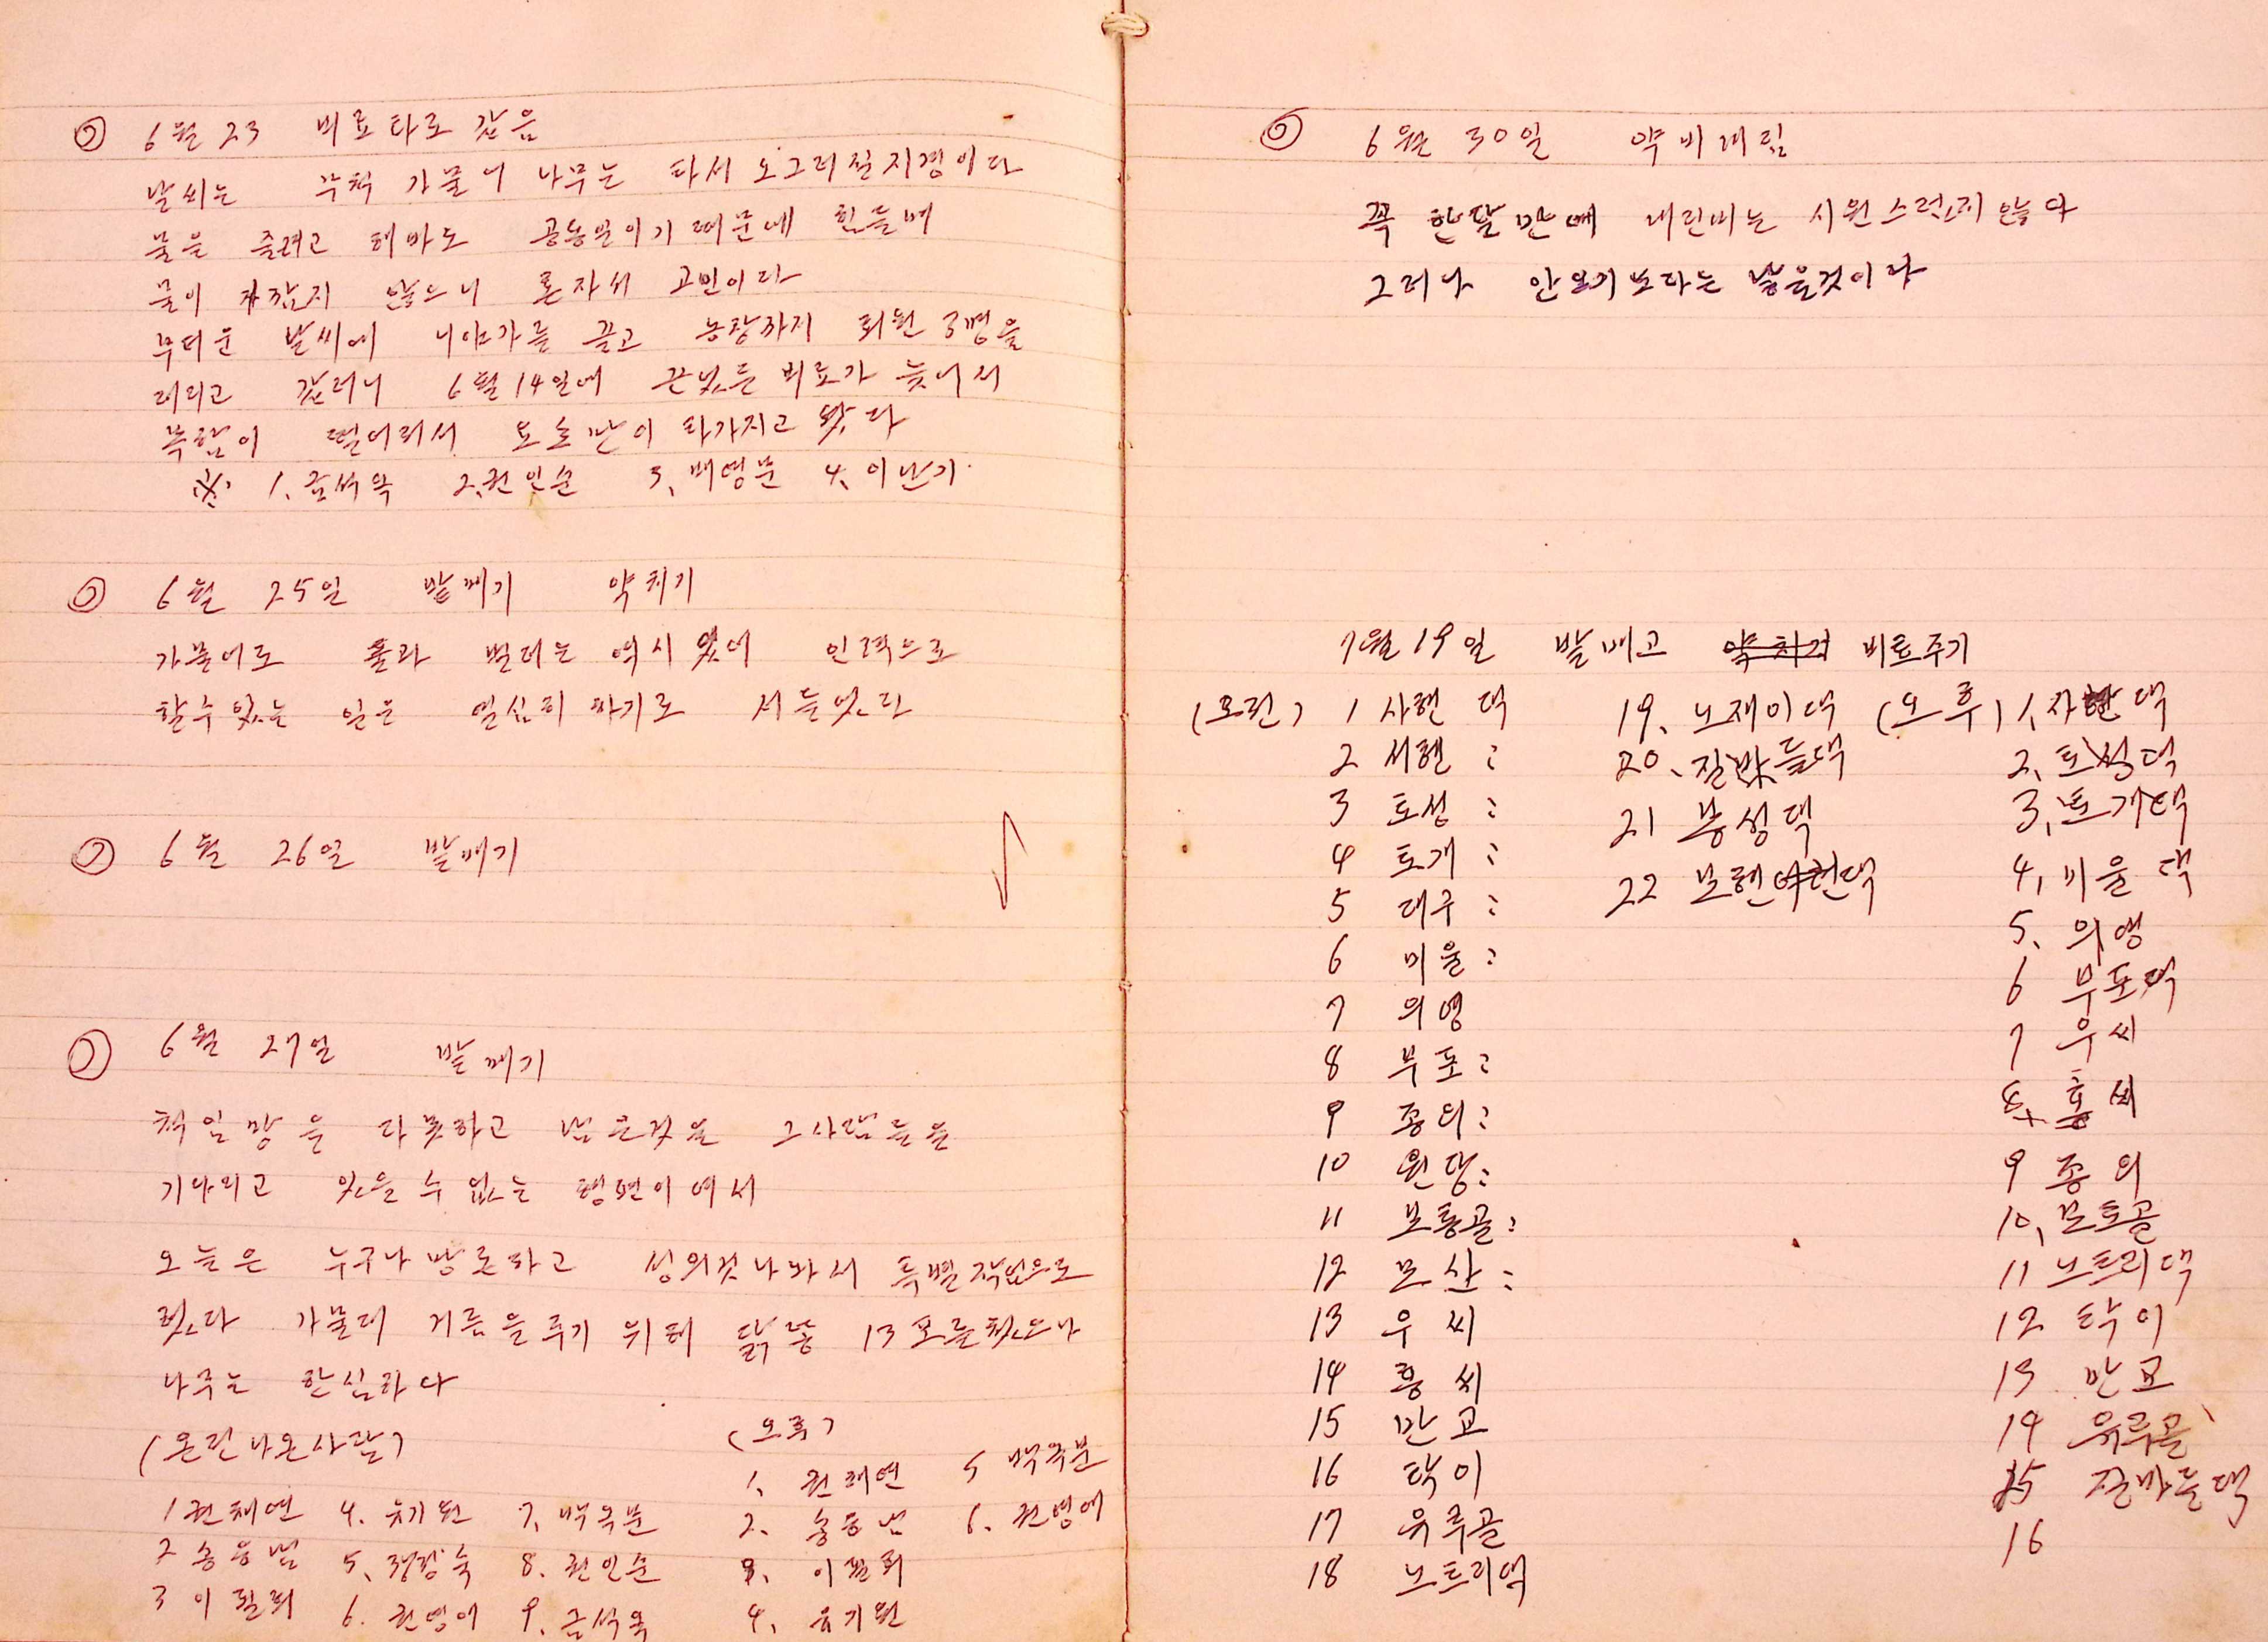 6월 23 비료타로 갔음
날씨는 무척 가물니 나무는 타서 오그러질지경이다
물을 줄려고 해바도 공동물이기때문에 힘들며
물이 자잖지 않으니 혼자서 고민이다
무더운 날씨에 니야가를 끌고 농장까지 회원 3명을
데리고 갔러니 6월 14일에 끈낫든 비료가 늦어서
복합이 떨어져서 요소만이 타가지고 왔다
※ 1. 금석옥 2. 권인순 3. 배영분 4. 이난기
6월 25일 밭매기 약치기
가물어도 풀과 벌러는 역시 있어 인력으로
할수있는 일은 열심히 하기로 서들엇다
6월 26일 밭매기
6월 27일 밭매기
책임량을 다못하고 남은것을 그사람들을
기다리고 있을수없는 형편이여서
오늘은 누구나 망논하고 성의것나와서 특별작업으로
했다 가물데 거름을 주기 위해 닭똥 13포를첫으나
나무는 한심하다
(온전나온사람) (오후)
1 권태연 4. 유기원 7. 백옥분 1. 권태연 5 백옥분
2 송응남 5. 정장숙 8. 권인순 2. 송응남 6. 권영애
3 이필희 6. 권영애 9. 금석옥 3. 이필희
4. 유기원
6월 30일 약비내림
꼭 한달만에 내린비는 시원스럽지않다
그러나 안오기보다는 낳을것이다
7월 19일 밭매고 약치기 비료주기
(오전) 1 사현댁 19. 노재이댁 (오후) 1. 사현댁
2 서현 : 20. 질밧들댁 2. 토성댁
3 토성 : 21 봉성댁 3. 토개댁
4 토개 : 22 보현댁 4. 미울댁
5 대구 : 5. 의영
6 미울 : 6 부포댁
7 의영 7 우씨
8 부포 : 8. 홍씨
9 종의 : 9 종의
10 원당 : 10. 보통골
11 보통골 : 11 노트리댁
12 모산 : 12 탁이
13 우씨 13 만고
14 홍씨 14 유루골
15 만고 15 질바들댁
16 탁이 16
17 유루골
18 노트리댁